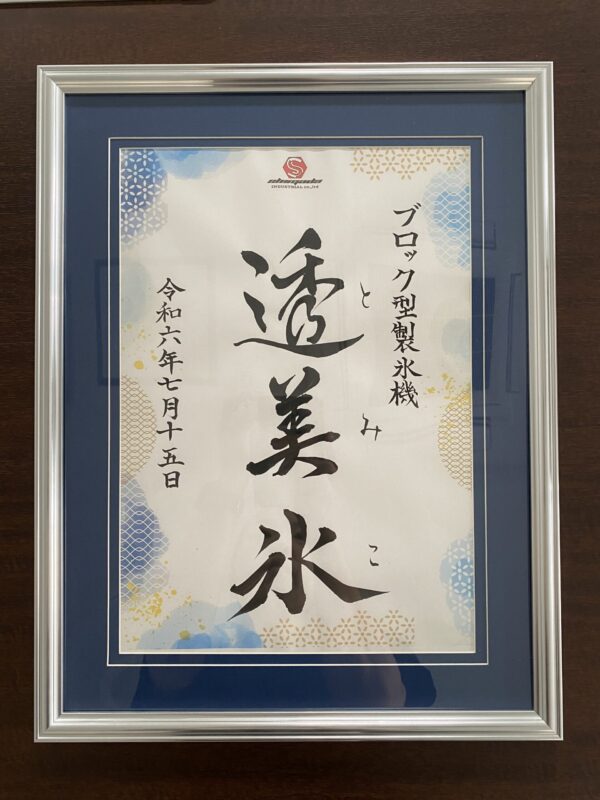 S
INDUSTRIAL co.,ltd
ブロック型製氷機
透美氷
とみこ
令和六年七月十五日